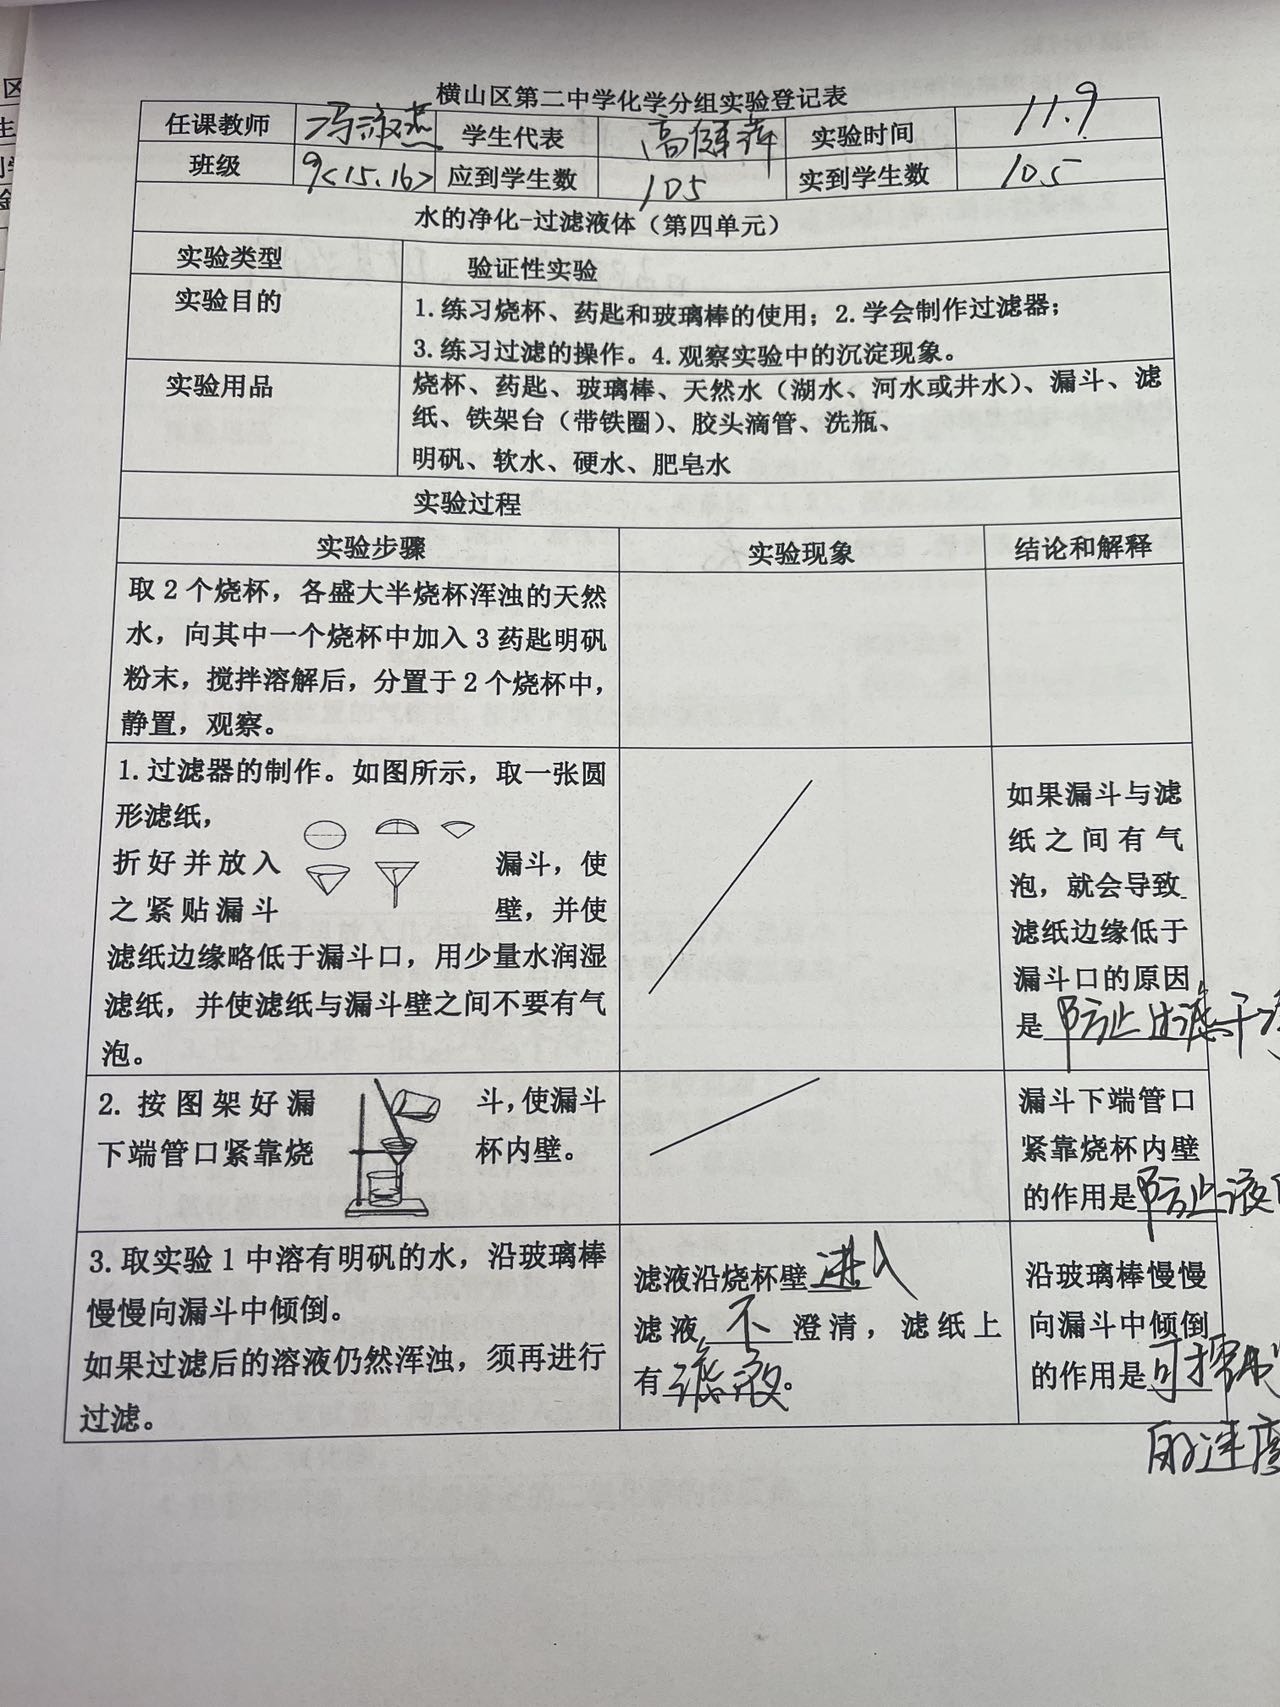 横山区第二中学化学分组实验登记表
任课教师 冯淑燕 学生代表 高健萍 实验时间 11.9
班级 9<15.16> 应到学生数 105 实到学生数 105
水的净化-过滤液体（第四单元）
实验类型 验证性实验
实验目的 1.练习烧杯、药匙和玻璃棒的使用；2.学会制作过滤器；
3.练习过滤的操作。4.观察实验中的沉淀现象。
实验用品 烧杯、药匙、玻璃棒、天然水（湖水、河水或井水）、漏斗、滤
纸、铁架台（带铁圈）、胶头滴管、洗瓶、
明矾、软水、硬水、肥皂水
实验过程
实验步骤 实验现象 结论和解释
取2个烧杯，各盛大半烧杯浑浊的天然
水，向其中一个烧杯中加入3药匙明矾
粉末，搅拌溶解后，分置于2个烧杯中，
静置，观察。
1.过滤器的制作。如图所示，取一张圆
形滤纸，
折好并放入 漏斗，使
之紧贴漏斗 壁，并使
滤纸边缘略低于漏斗口，用少量水润湿
滤纸，并使滤纸与漏斗壁之间不要有气
泡。
如果漏斗与滤
纸之间有气
泡，就会导致
滤纸边缘低于
漏斗口的原因
是防止过滤不
2. 按图架好漏 斗，使漏斗
下端管口紧靠烧 杯内壁。
漏斗下端管口
紧靠烧杯内壁
的作用是防止液
3.取实验1中溶有明矾的水，沿玻璃棒
慢慢向漏斗中倾倒。
如果过滤后的溶液仍然浑浊，须再进行
过滤。
滤液沿烧杯壁进入
滤液不澄清，滤纸上
有滤液。
沿玻璃棒慢慢
向漏斗中倾倒
的作用是可
的速度